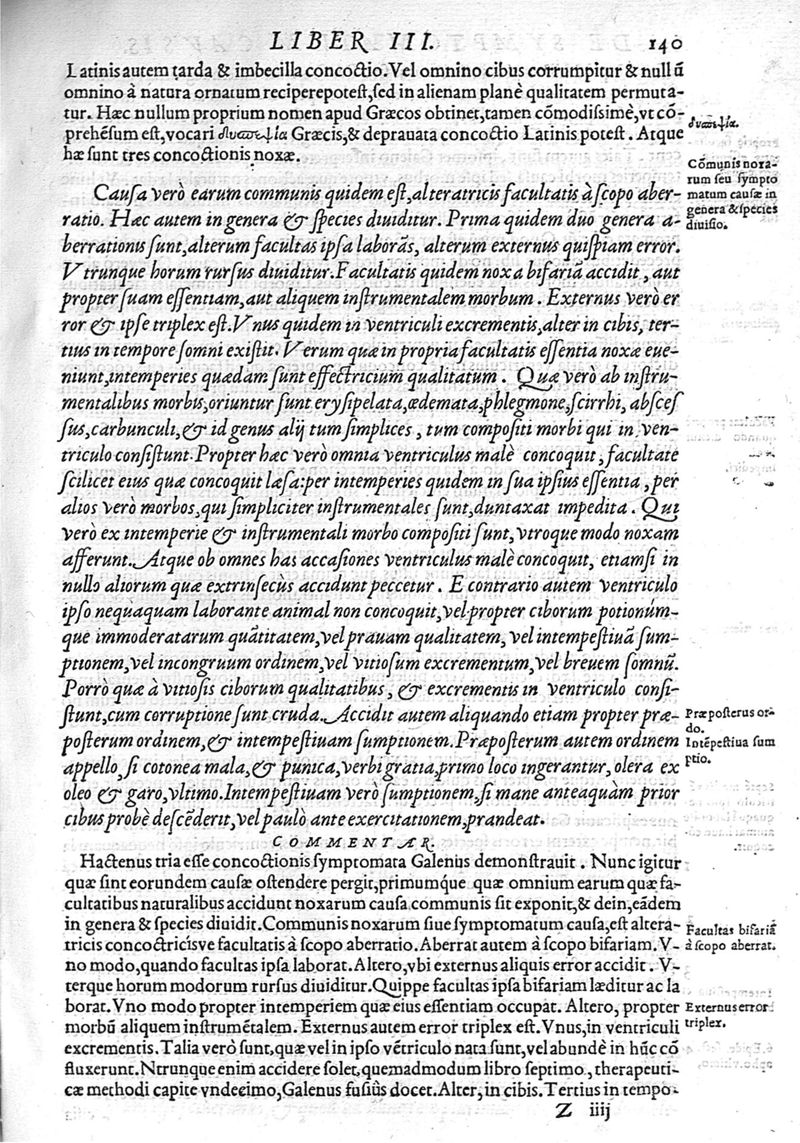 LIBER III. 140
Latinis autem tarda & imbecilla concoctio. Vel omnino cibus corrumpitur & nullũ
omnino à natura ornatum recipere potest, sed in alienam planè qualitatem permuta-
tur. Hæc nullum proprium nomen apud Græcos obtinet, tamen cõmodissimè, vt cõ-
prehẽsum est, vocari δυσπεψία Græcis, & deprauata concoctio Latinis potest. Atque
hæ sunt tres concoctionis noxæ.
δυσπεψία.
Causa verò earum communis quidem est, alteratricis facultatis à scopo aber-
ratio. Hæc autem in genera & species diuiditur. Prima quidem duo genera a-
berrationis sunt, alterum facultas ipsa laborãs, alterum externus quispiam error.
Vtrunque horum rursus diuiditur. Facultatis quidem noxa bifariã accidit, aut
propter suam essentiam, aut aliquem instrumentalem morbum. Externus verò er
ror & ipse triplex est. Vnus quidem in ventriculi excrementis, alter in cibis, ter-
tius in tempore somni existit. Verum quæ in propria facultatis essentia noxæ eue-
niunt, intemperies quædam sunt effectricium qualitatum. Quæ verò ab instru-
mentalibus morbis, oriuntur sunt erysipelata, œdemata, phlegmone, scirrhi, absces
sus, carbunculi, & id genus alij tum simplices, tum compositi morbi qui in ven-
triculo consistunt. Propter hæc verò omnia ventriculus malè concoquit, facultate
scilicet eius quæ concoquit læsa: per intemperies quidem in sua ipsius essentia, per
alios verò morbos, qui simpliciter instrumentales sunt, duntaxat impedita. Qui
verò ex intemperie & instrumentali morbo compositi sunt, vtroque modo noxam
afferunt. Atque ob omnes has accasiones ventriculus malè concoquit, etiamsi in
nullo aliorum quæ extrinsecùs accidunt peccetur. E contrario autem ventriculo
ipso nequaquam laborante animal non concoquit, vel propter ciborum potionúm-
que immoderatarum quãtitatem, vel prauam qualitatem, vel intempestiuã sum-
ptionem, vel incongruum ordinem, vel vitiosum excrementum, vel breuem somnũ.
Porrò quæ à vitiosis ciborum qualitatibus, & excrementis in ventriculo consi-
stunt, cum corruptione sunt cruda. Accidit autem aliquando etiam propter præ-
posterum ordinem, & intempestiuam sumptionem. Præposterum autem ordinem
appello, si cotonea mala, & punica, verbi gratia, primo loco ingerantur, olera ex
oleo & garo, vltimo. Intempestiuam verò sumptionem, si mane anteaquàm prior
cibus probè descẽderit, vel paulò ante exercitationem, prandeat.
Cõmunis noxa-
rum seu sympto
matum causæ in
genera & species
diuisio.
Præposterus or-
do.
Intẽpestiua sum
ptio.
COMMENTAR.
Hactenus tria esse concoctionis symptomata Galenus demonstrauit. Nunc igitur
quæ sint eorundem causæ ostendere pergit, primumq́ue quæ omnium earum quæ fa-
cultatibus naturalibus accidunt noxarum causa communis sit exponit, & dein, eãdem
in genera & species diuidit. Communis noxarum siue symptomatum causa, est altera-
tricis concoctricisve facultatis à scopo aberratio. Aberrat autem à scopo bifariam. V-
no modo, quando facultas ipsa laborat. Altero, vbi externus aliquis error accidit. V-
terque horum modorum rursus diuiditur. Quippe facultas ipsa bifariam læditur ac la
borat. Vno modo propter intemperiem quæ eius essentiam occupat. Altero, propter
morbũ aliquem instrumẽtalem. Externus autem error triplex est. Vnus, in ventriculi
excrementis. Talia verò sunt, quæ vel in ipso vẽtriculo nata sunt, vel abundè in hũc cõ
fluxerunt. Ntrunque enim accidere solet, quemadmodum libro septimo, therapeuti-
cæ methodi capite vndecimo, Galenus fusiùs docet. Alter, in cibis. Tertius in tempo-
Facultas bifariã
à scopo aberrat.
Externus error
triplex.
Z iiij